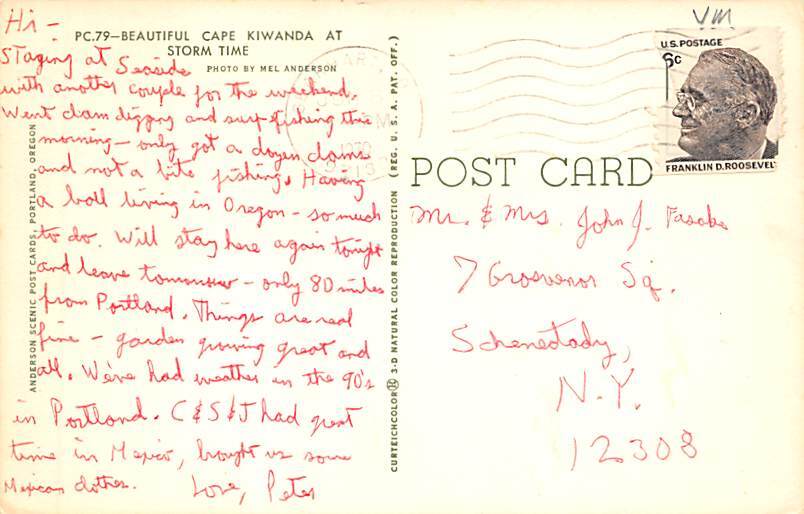 Hi -
PC.79—BEAUTIFUL CAPE KIWANDA AT
STORM TIME
PHOTO BY MEL ANDERSON
Staying at Seaside
with another couple for the weekend.
Went clam digging and surf-fishing this
morning - only got a dozen clams
and not a bite fishing. Having
a ball living in Oregon - so much
to do. Will stay here again tonight
and leave tomorrow - only 80 miles
from Portland. Things are real
fine - garden growing great and
all. We've had weather in the 90's
in Portland. C & S & J had great
time in Mexico, brought us some
Mexican clothes. Love, Peter
ANDERSON SCENIC POST CARDS, PORTLAND, OREGON
CURTEICHCOLOR® 3-D NATURAL COLOR REPRODUCTION (REG. U. S. A. PAT. OFF.)
1970
VM
U.S. POSTAGE
6c
FRANKLIN D. ROOSEVELT
POST CARD
Mr. & Mrs. John J.
7 Grosvenor Sq.
Schenectady,
N.Y.
12308